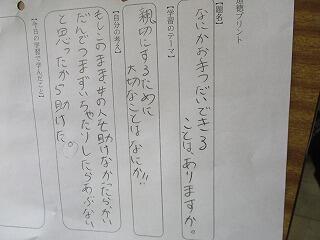 道徳プリント
【題名】
なにかお手つだいできる
ことは、ありますか。
【学習のテーマ】
親切にするために
大切なことはなにか!!
【自分の考え】
もしこのまま女の人を助けなかったら、かい
だんでつまずいちゃたりしたらあぶない
と思ったから助けた。
【今日の学習で学んだこと】